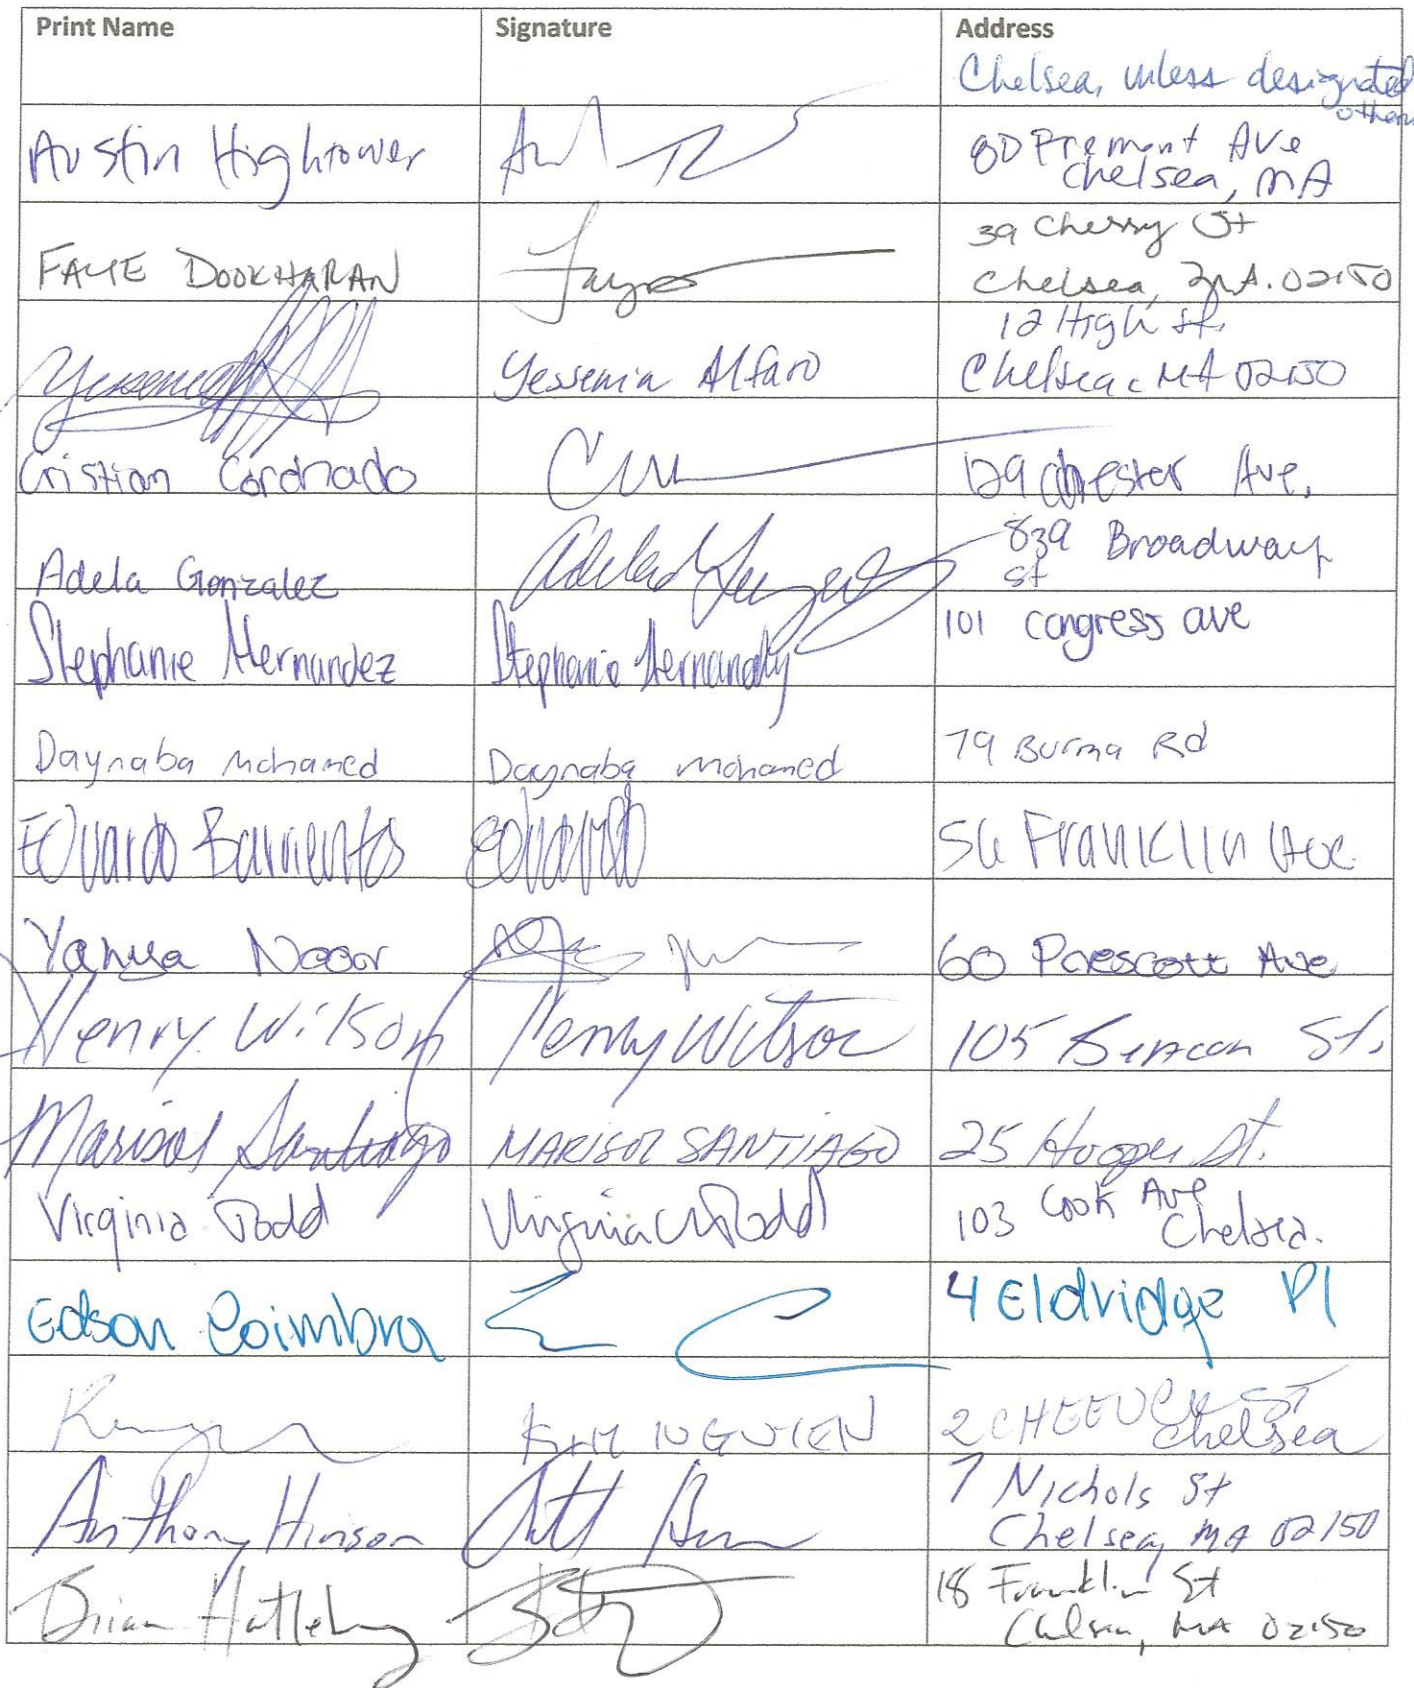 Print Name Signature Address
Chelsea, unless designated
Austin Hightower 80 Fremont Ave
Chelsea, MA
FAYE DOOKHARAN Faye 39 Cherry St
Chelsea, MA. 02150
Yessenia Alfaro 12 High St.
Chelsea, MA 02150
Cristian Cordnado 129 Chester Ave.
Adela Gonzalez Adela Gonzalez 839 Broadway
St
Stephanie Hernandez Stephanie Hernandez 101 congress ave
Daynaba Mohamed Daynaba Mohamed 79 Burma Rd
Eduardo Barrientos Eduardo 56 Franklin Ave
Yahya Noor 60 Prescott Ave
Henry Wilson Henry Wilson 105 Beacon St.
Marisol Santiago MARISOL SANTIAGO 25 Hooper St.
Virginia Todd Virginia Todd 103 Cook Ave
Chelsea.
Edson Coimbra E C 4 Eldridge Pl
KIM NGUYEN 2 ST
Chelsea
Anthony Hinson 7 Nichols St
Chelsea, MA 02150
Brian Hatleberg 18 Franklin St
Chelsea, MA 02150